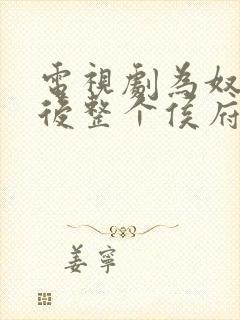 電視劇為奴
後整个侯府
姜寧